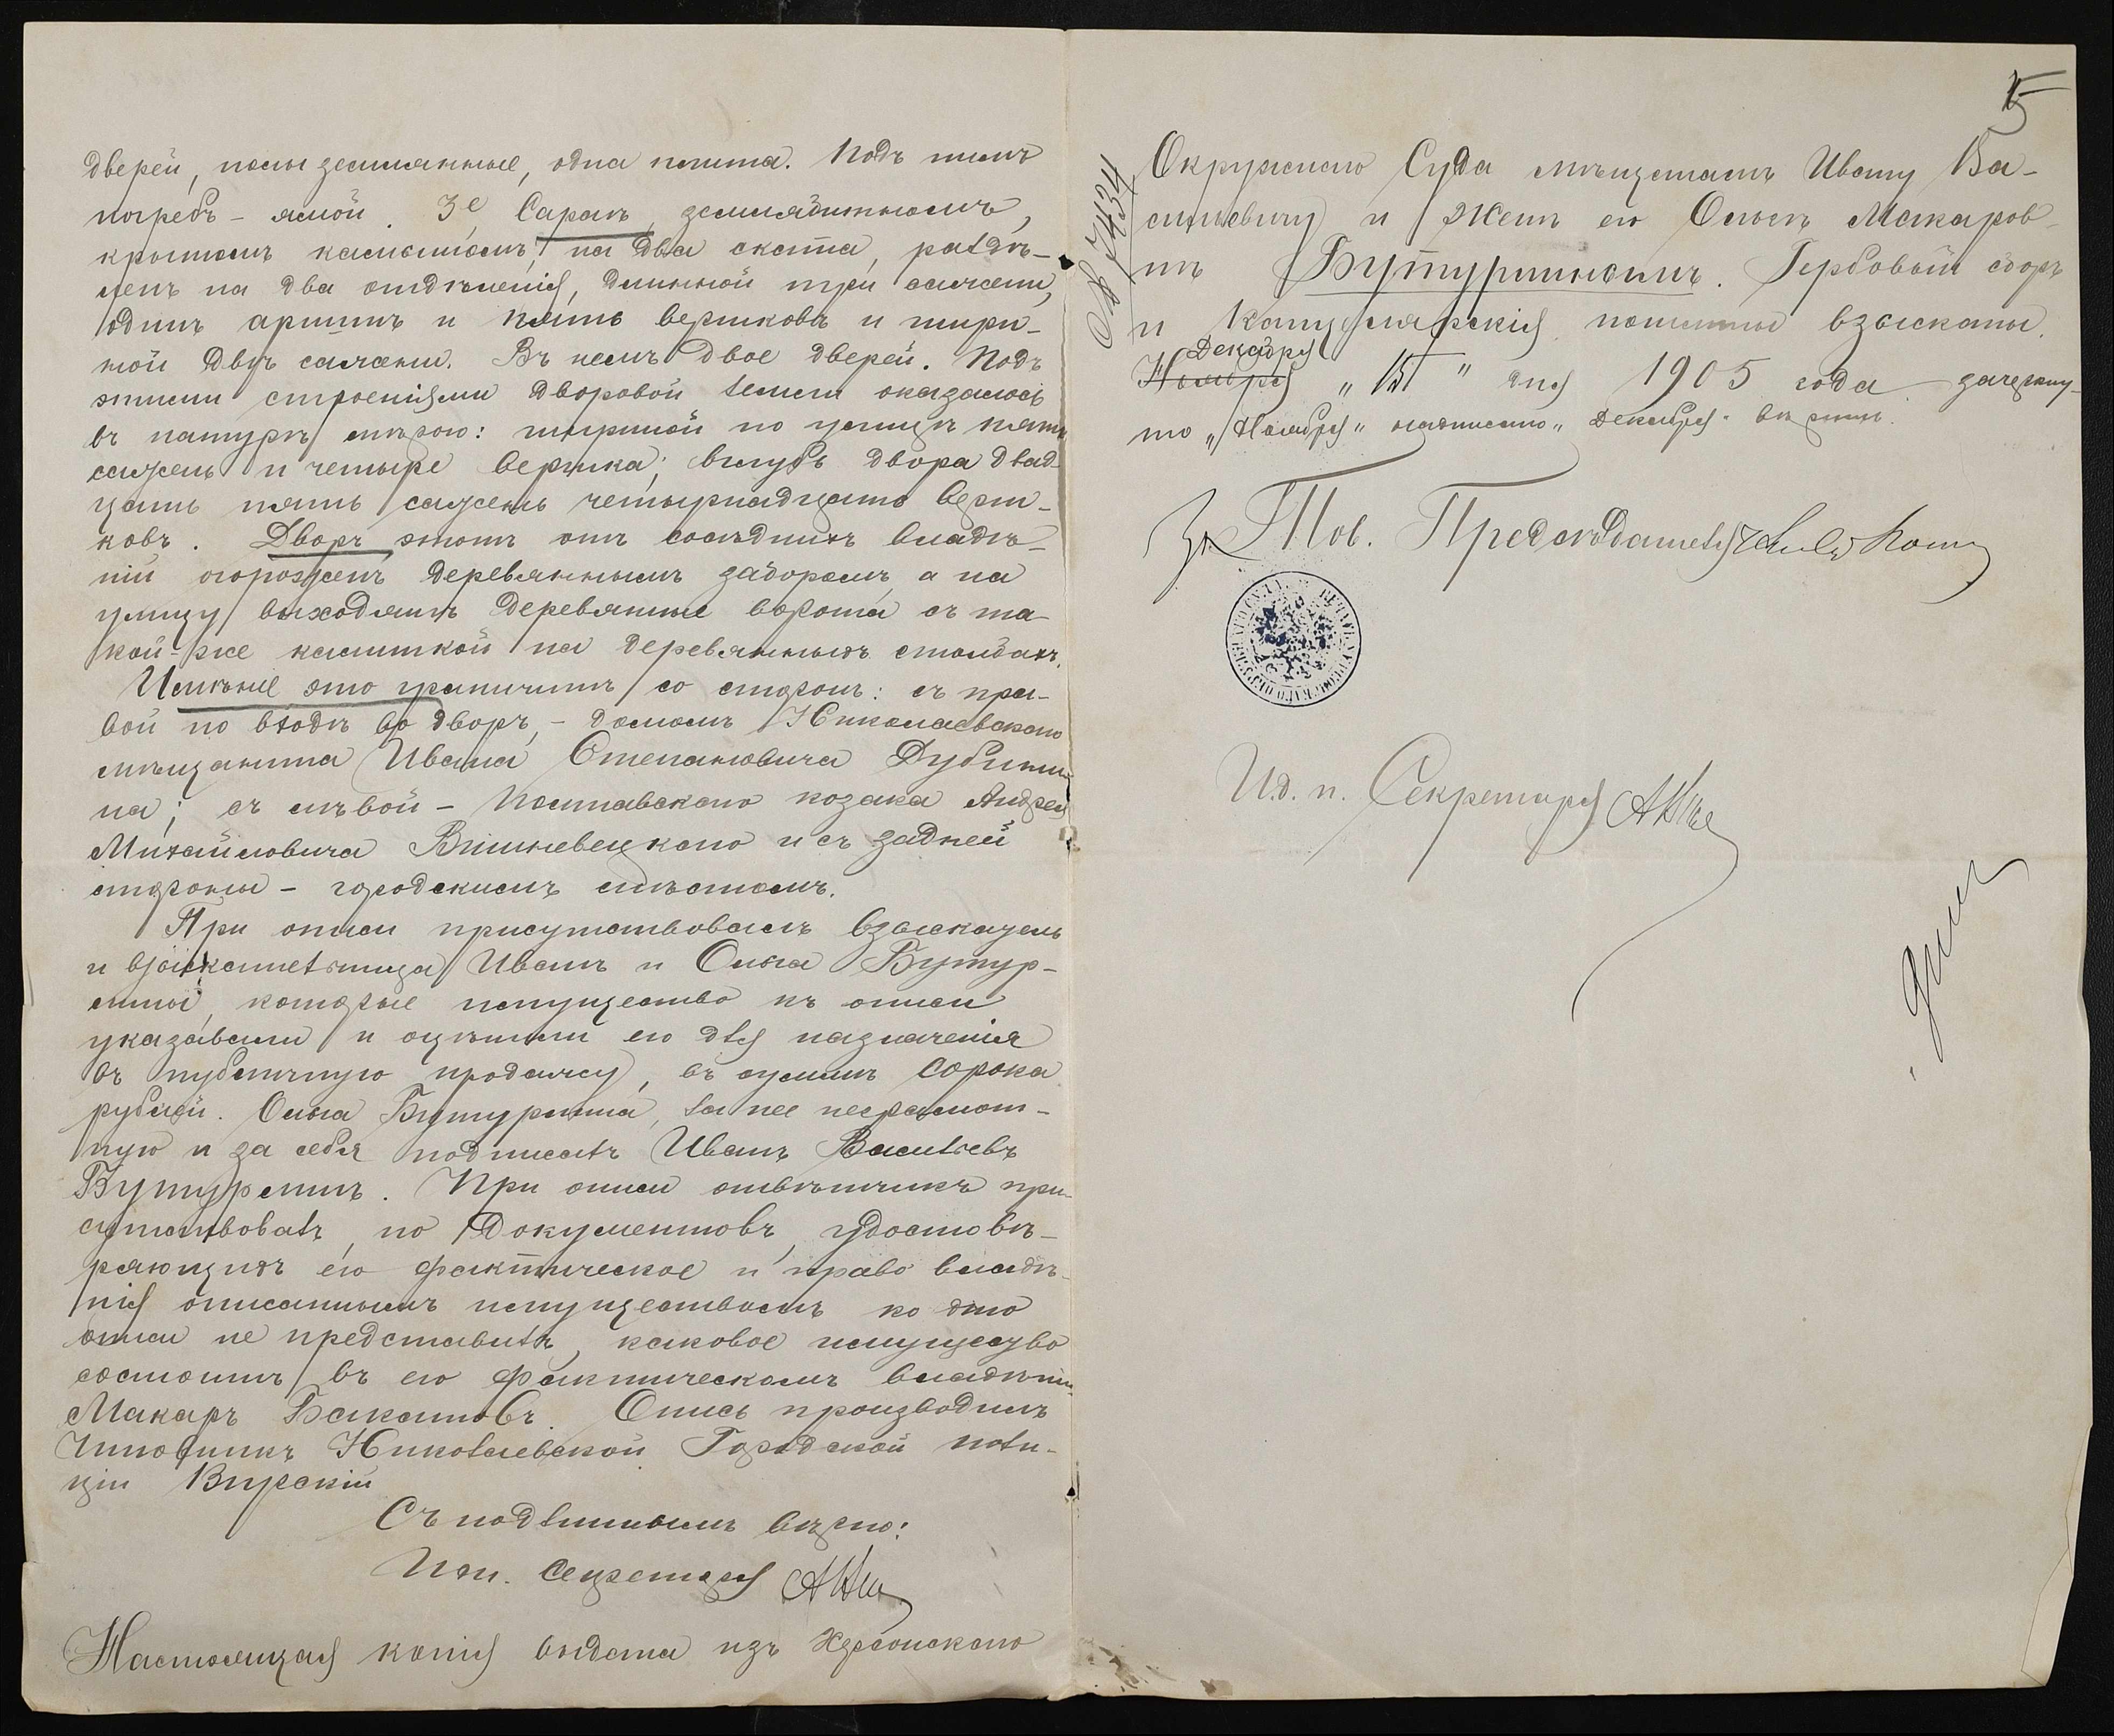 дверей, полы землянные, одна плита. Подъ нимъ
погребъ - ямой. 3е Сарай землябитномъ,
крытомъ камышомъ, на два ската, раздѣ-
ленъ на два отдѣленія, длинной три сажени,
одинъ аршинъ и пять вершковъ и шири-
ной двѣ сажени. Въ немъ двое дверей. Подъ
этими строеніями дворовой земли оказалось
въ натурѣ мѣрою: шириной по улицѣ пять
сажень и четыре вершка; вглубь двора двад-
цать пять сажень четырнадцать верш-
ковъ. Дворъ этотъ отъ сосѣднихъ владѣ-
ній огороженъ деревяннымъ заборомъ, а на
улицу выходятъ деревянные ворота съ та-
кой-же калиткой на деревянныхъ столбахъ.
Имѣніе это граничитъ со сторонъ: съ пра-
вой по входѣ во дворъ, - домомъ Николаевскаго
мѣщанина Ивана Степановича Дубини
на; съ лѣвой - Полтавскаго козака Андрея
Михайловича Вишневецкаго и съ задней
стороны - городскимъ мѣстомъ.
При описи присутствовалъ взыскатель
и взыскательница Иванъ и Ольга Бутур-
лины, которые имущество къ описи
указывали и оцѣнили его для назначенія
въ публичную продажу, въ суммѣ сорока
рублей. Ольга Бутурлина, за нее неграмот-
ную и за себя подписалъ Иванъ Васильевъ
Бутурлинъ. При описи отвѣтчикъ при-
сутствовалъ, но документовъ, удостовѣ-
ряющихъ его фактическое и право владѣ-
нія описаннымъ имуществомъ ко дню
описи не представилъ, каковое имущество
состоитъ въ его фактическомъ владѣніи
Макаръ Бакановъ. Опись производилъ
Чиновникъ Николаевской Городской поли-
ціи Вирскій
Съ подлиннымъ вѣрно:
И.д.п. Секретаря
Настоящая копія выдана изъ Херсонскаго
Окружнаго Суда мѣщанамъ Ивану Ва-
сильевичу и женѣ его Ольгѣ Макаров-
нѣ Бутурлинымъ. Гербовый сборъ
и Канцелярскія пошлины взысканы.
Декабря
Ноября „15" дня 1905 года. зачеркну-
то „Ноября" надписано „Декабря" вѣрить.
За Тов. Предсѣдателя
И.д.п. Секретаря